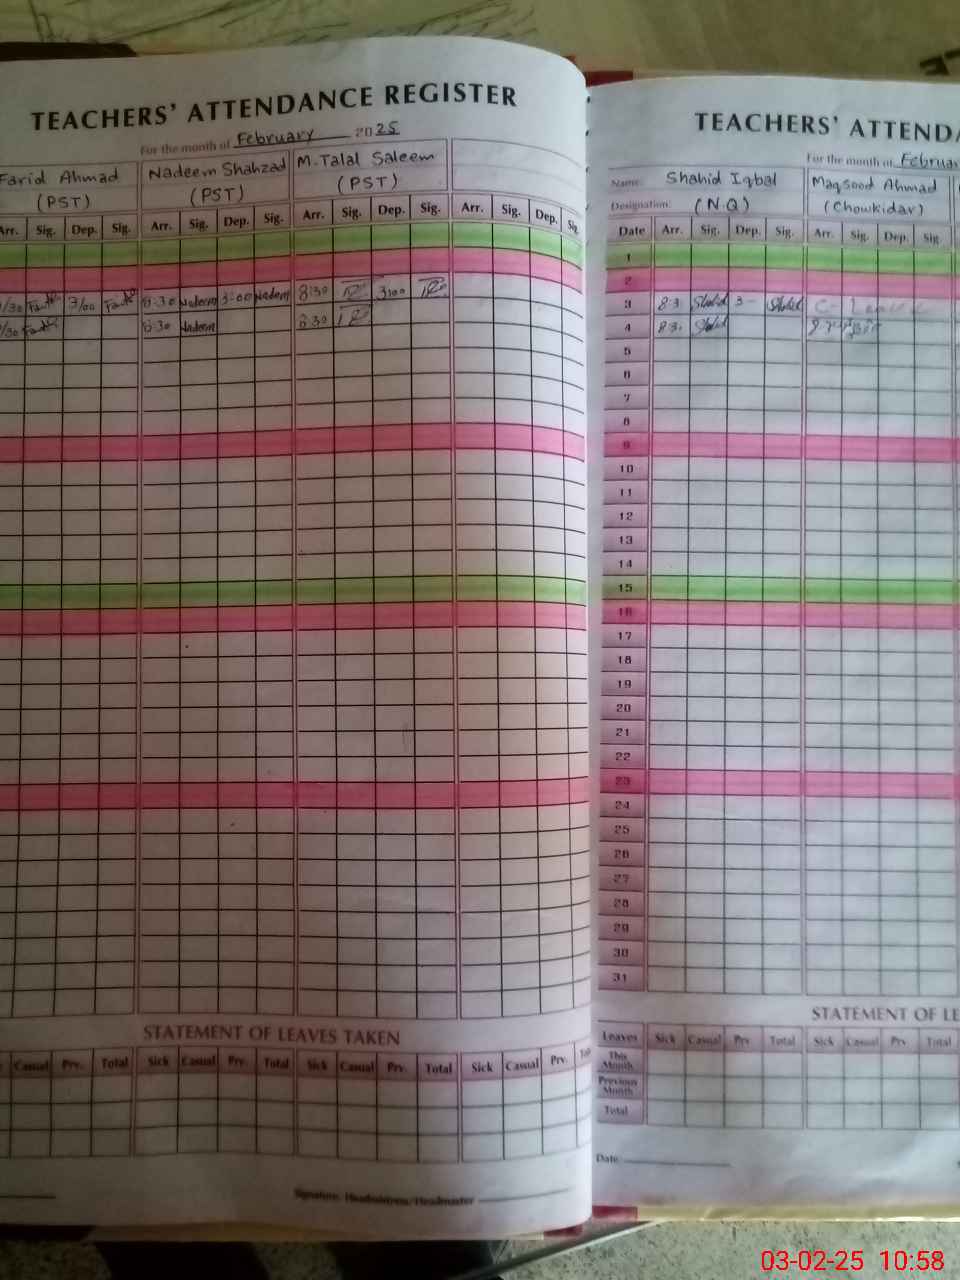 TEACHERS' ATTENDANCE REGISTER
For the month of February 2025
Farid Ahmad Nadeem Shahzad M. Talal Saleem
(PST) (PST) (PST)
Arr. Sig. Dep. Sig. Arr. Sig. Dep. Sig. Arr. Sig. Dep. Sig. Arr. Sig. Dep. Sig.
3/00 8-30 Nadeem 3-00 Nadeem 8:30 3:00
8-30 Nadeem 8 30
STATEMENT OF LEAVES TAKEN
Casual Prv. Total Sick Casual Prv. Total Sick Casual Prv. Total Sick Casual Prv.
Signature: Headmistress/Headmaster
TEACHERS' ATTENDA
For the month of Februar
Name: Shahid Iqbal Maqsood Ahmad
Designation: (N.Q) (Chowkidar)
Date Arr. Sig. Dep. Sig. Arr. Sig. Dep. Sig
1
2
3 8:3 Shahid 3- Shahid C- Leave
4 8:3 Shahid
5
6
7
8
9
10
11
12
13
14
15
16
17
18
19
20
21
22
23
24
25
26
27
28
29
30
31
STATEMENT OF LE
Leaves Sick Casual Prv Total Sick Casual Prv Total
This Month
Previous Month
Total
Date
03-02-25 10:58